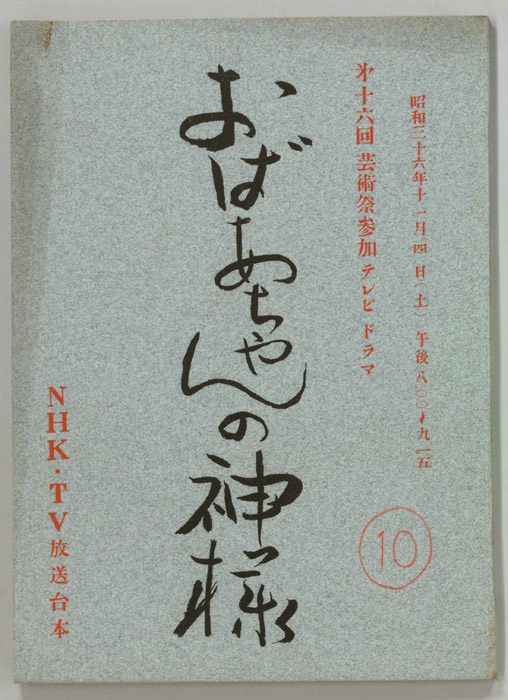 昭和三十六年十一月四日(土) 午後八・〇〇〜九・一五
第十六回 芸術祭参加テレビドラマ
おばあちゃんの神様
10
NHK・TV放送台本